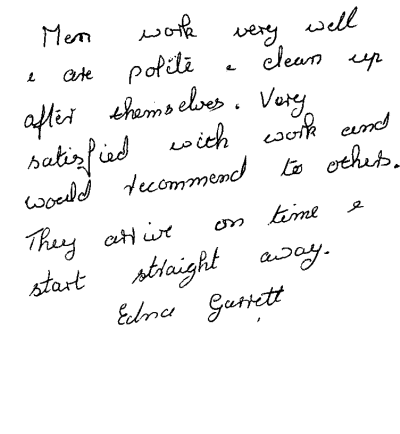 Men work very well
& are polite & clean up
after themselves. Very
satisfied with work and
would recommend to others.
They arrive on time &
start straight away.
Edna Garrett